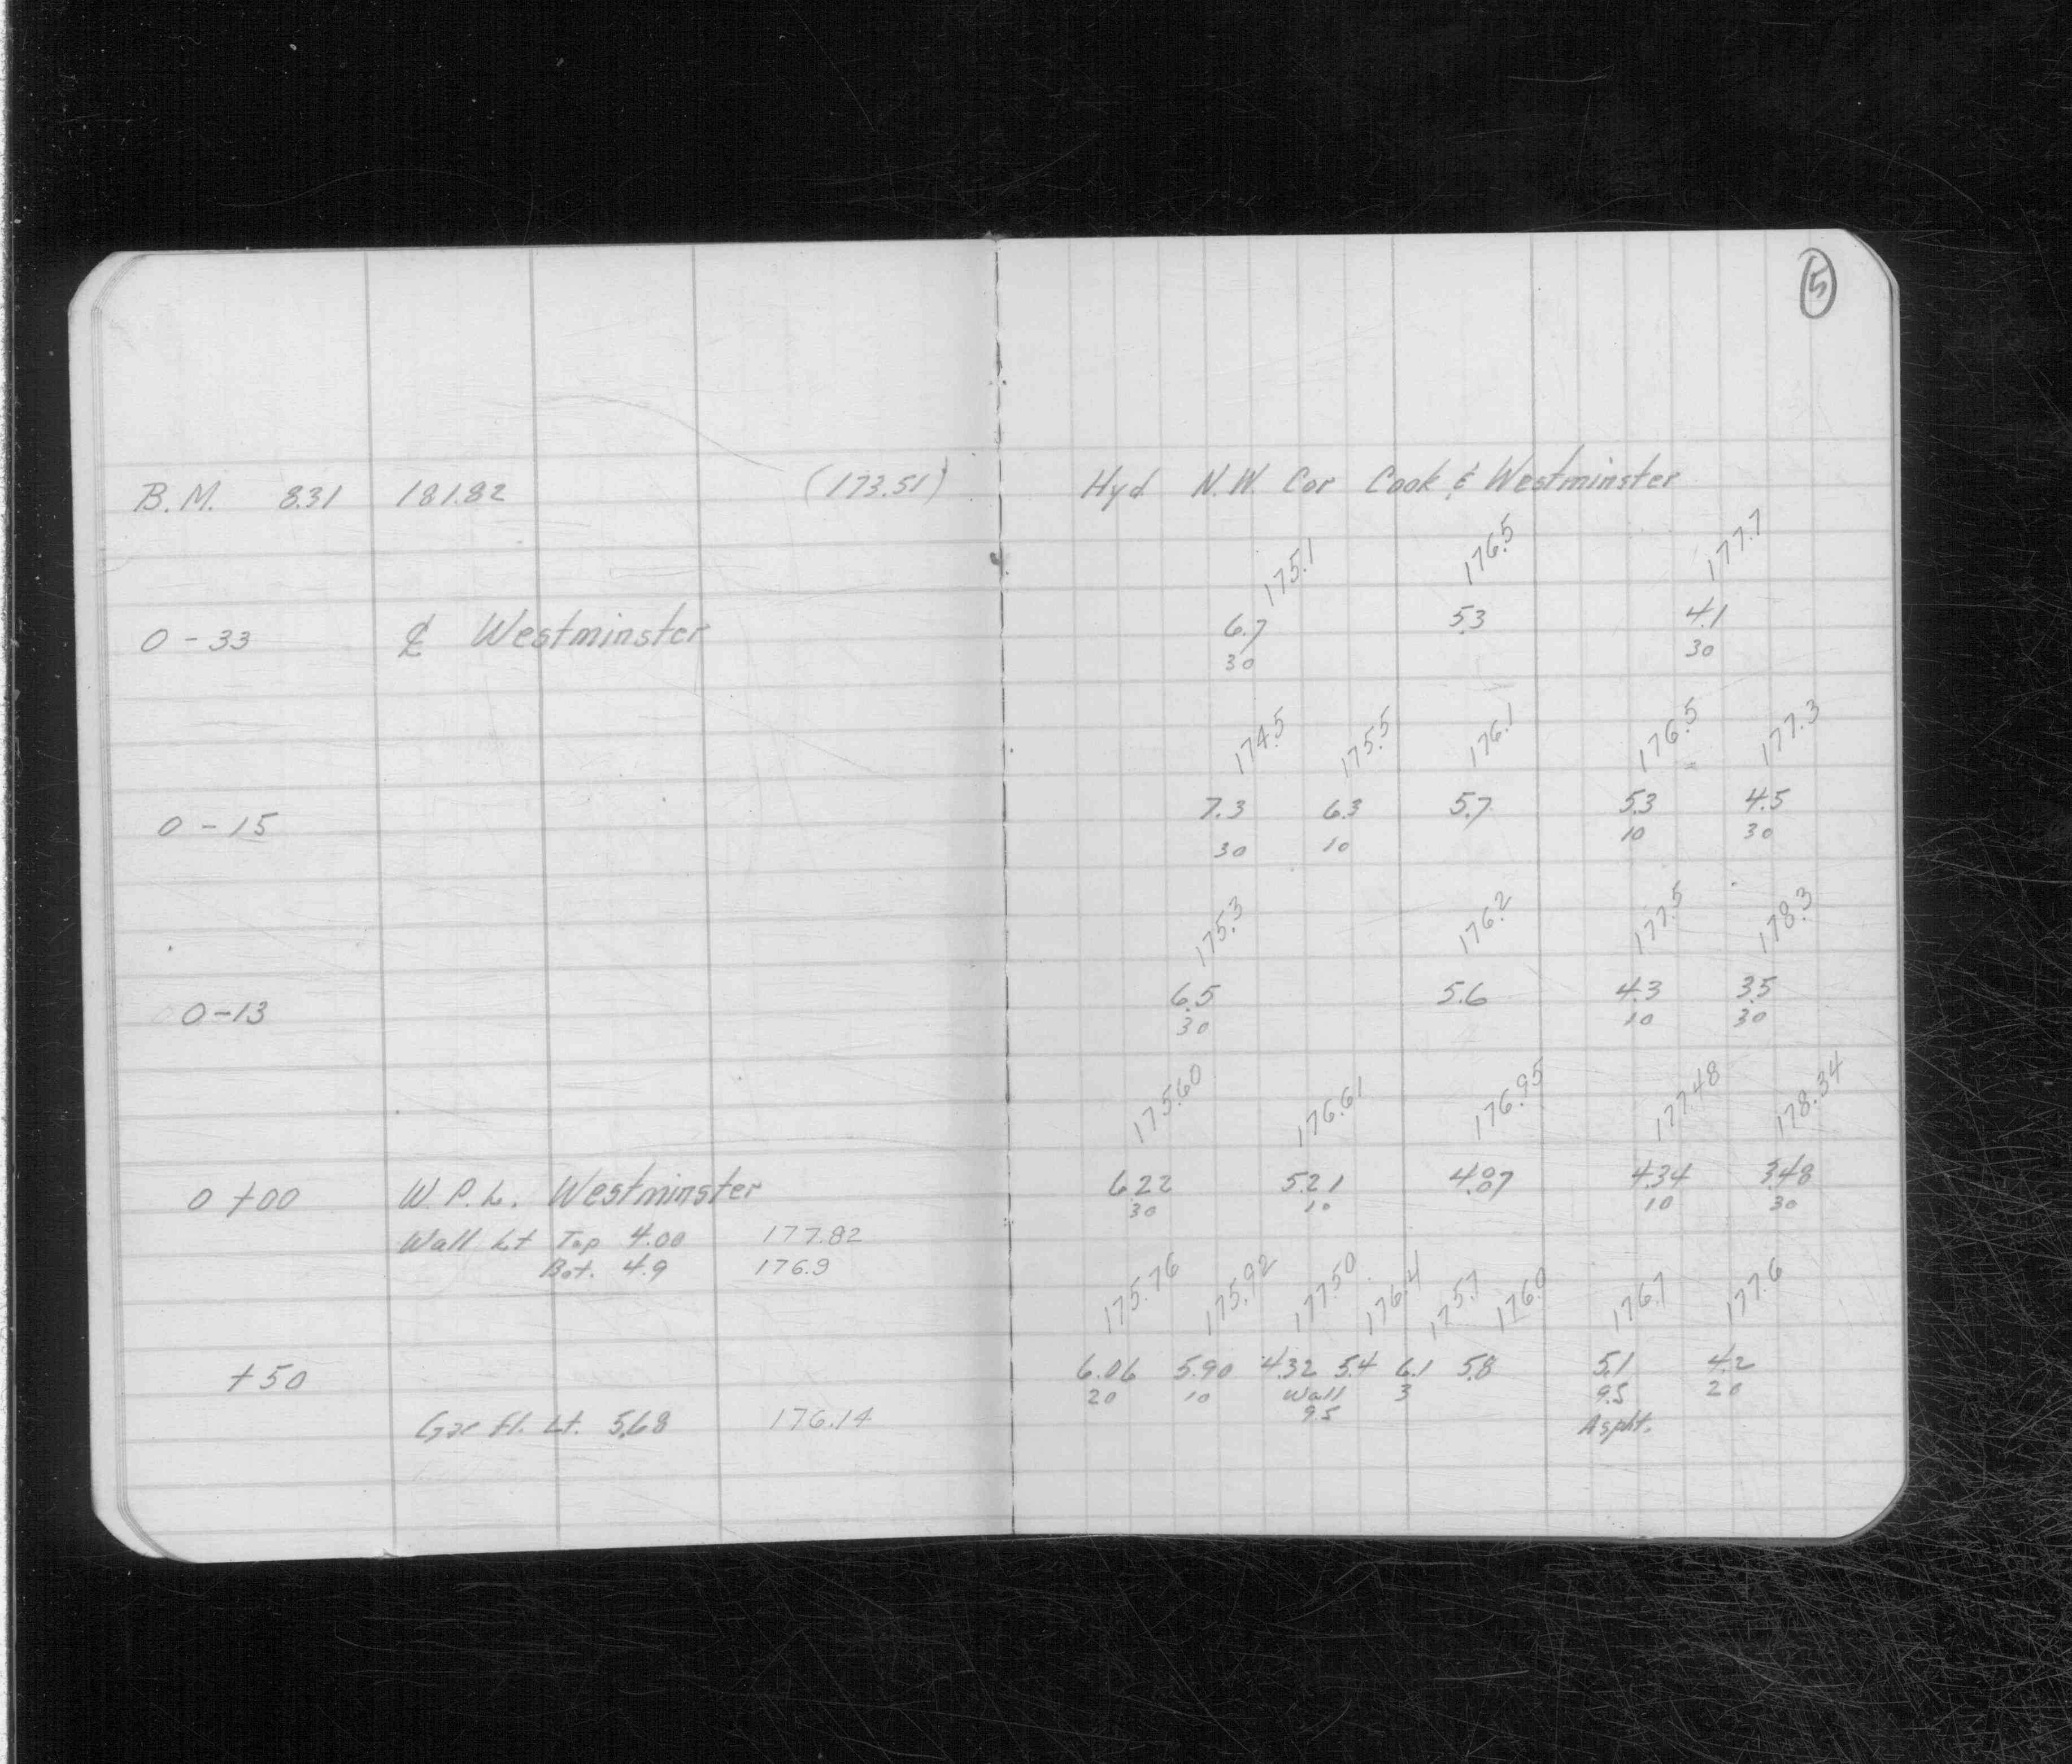 5
B.M. 8.31 181.82 (173.51) Hyd N.W. Cor Cook & Westminster
175.1 176.5 177.7
0-33 ℄ Westminster 6.7 5.3 4.1
30 30
174.5 175.5 176.1 176.5 177.3
0-15 7.3 6.3 5.7 5.3 4.5
30 10 10 30
175.3 176.2 177.5 178.3
0-13 6.5 5.6 4.3 3.5
30 10 30
175.60 176.61 176.95 177.48 178.34
0+00 W.P.L. Westminster 6.22 5.21 4.87 4.34 3.48
30 10 10 30
Wall Lt Top 4.00 177.82
Bot. 4.9 176.9
175.76 175.92 177.50 176.4 175.7 176.0 176.7 177.6
+50 6.06 5.90 4.32 5.4 6.1 5.8 5.1 4.2
20 10 Wall 3 9.5 20
9.5
Gar Fl. Lt. 5.68 176.14 Aspht.